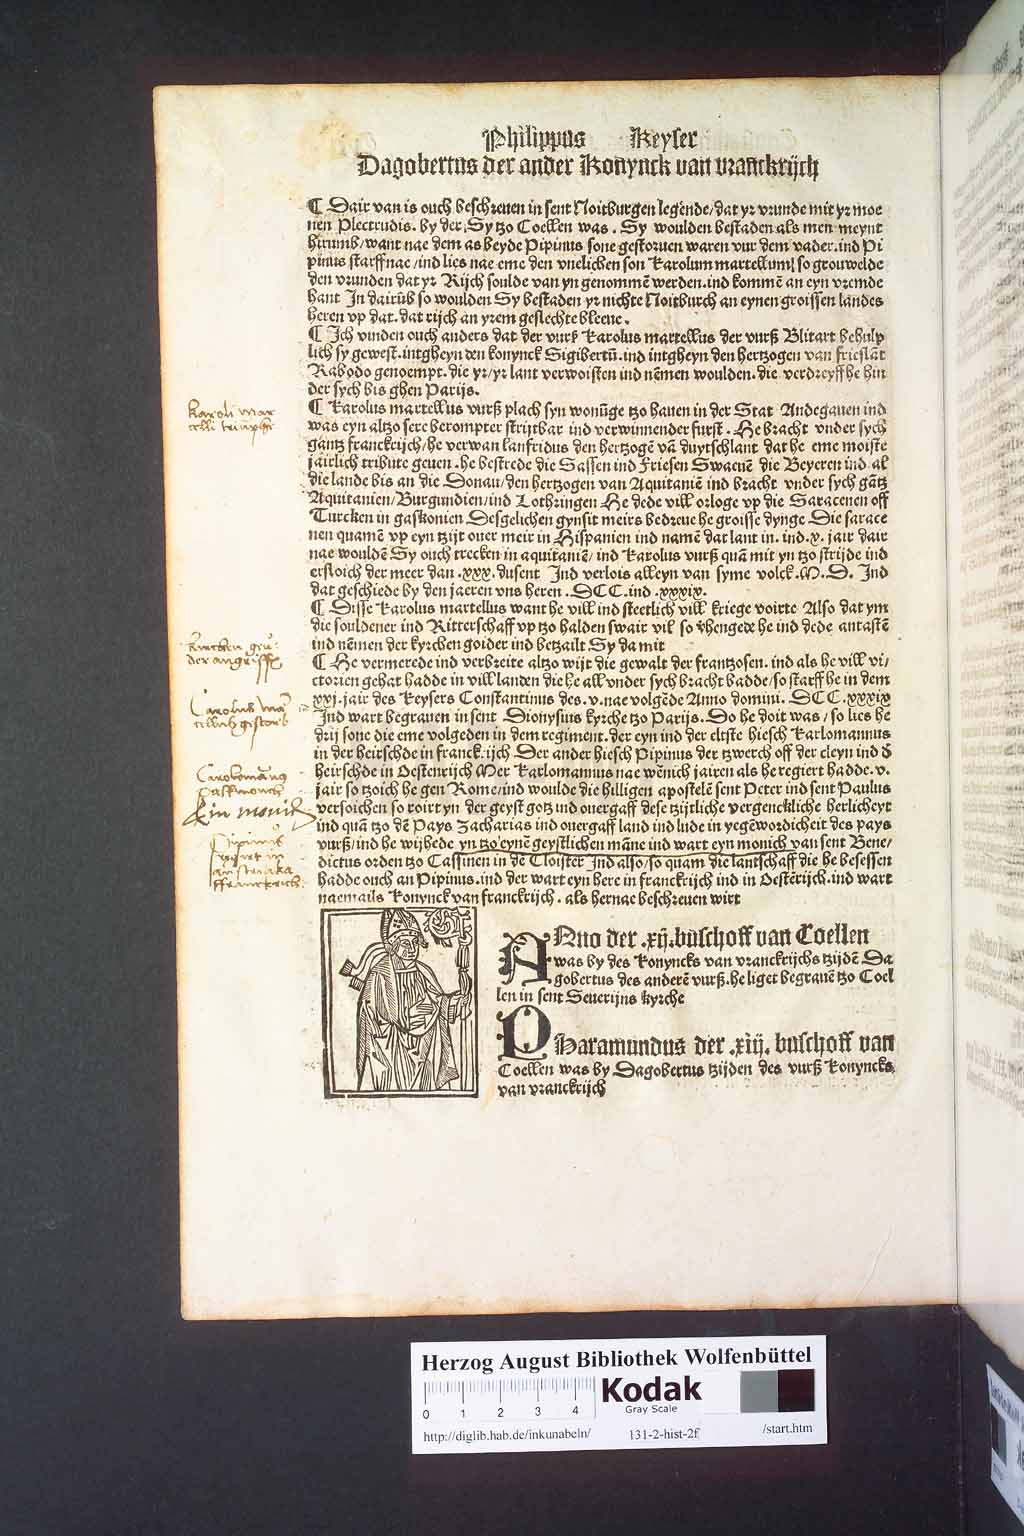 Philippus Keyser
Dagobertus der ander Konynck van vranckrijch
¶ Dair van is ouch beschreuen in sent Noitburgen legende/dat yr vrunde mit yr moe
nen Plectrudis. by der Sy tzo Coellen was. Sy woulden bestaden als men meynt
hirumb/want nae dem as beyde Pipinus sone gestoruen waren vur dem vader.ind Pi
pinus starff nae/ind lies nae eme den vnelichen son Karolum martellum/so grouwelde
den vrunden dat yr Rijch soulde van yn genommē werden.ind kommē an eyn vremde
hant In dairūb so woulden Sy bestaden yr nichte Noitburch an eynen groissen landes
heren vp dat. dat rijch an yrem geslechte bleeue.
¶ Jch vinden ouch anders dat der vurß Karolus martellus der vurß Blitart behulp
lich sy gewest.intgheyn den konynck Sigibertū.ind intgheyn den hertzogen van frieslāt
Rabodo genoempt.die yr/yr lant verwoisten ind nēmen woulden.die verdreyff he hin
der sych bis ghen Parijs.
¶ Karolus martellus vurß plach syn wonūge tzo hauen in der Stat Andegauen ind
was eyn altzo sere berompter strijtbar ind verwinnender furst. He bracht vnder sych
gantz franckrijch/he verwan lanfridus den hertzogē vā duytschlant dat he eme moiste
jairlich tribute geuen.he bestrede die Sassen ind Friesen Swaeuē die Beyeren ind al
die lande bis an die Donau/den hertzogen van Aquitaniē ind bracht vnder sych gātz
Aquitanien/Burgundien/ind Lothringen He dede vill orloge vp die Saracenen off
Turcken in gaskonien Desgelichen gynsit meirs bedreue he groisse dynge Die sarace
nen quamē vp eyn tzijt ouer meir in Hispanien ind namē dat lant in. ind.x. jair dair
nae wouldē Sy ouch trecken in aquitaniē/ind Karolus vurß quā mit yn tzo strijde ind
ersloich der meer dan .xxx. dusent Ind verlois alleyn van syme volck.M.D. Ind
dat geschiede by den jaeren vns heren .DCC.ind .xxxix.
¶ Disse Karolus martellus want he vill ind steetlich vill kriege voirte Also dat ym
die souldener ind Ritterschaff vp tzo halden swair vil so vhengede he ind dede antastē
ind nēmen der kyrchen goider ind betzailt Sy da mit
¶ He vermerede ind verbreite altzo wijt die gewalt der frantzosen. ind als he vill vi/
ctorien gehat hadde in vill landen die he all vnder sych bracht hadde/so starff he in dem
xxj.jair des Keysers Constantinus des.v.nae volgēde Anno domini. DCC.xxxix
Ind wart begrauen in sent Dionysius kyrche tzo Parijs. Do he doit was/so lies he
drij sone die eme volgeden in dem regiment.der eyn ind der eltste hiesch Karlomannus
in der heirschde in franck.ijch Der ander hiesch Pipinus der tzwerch off der cleyn ind d
heirschde in Oestenrijch Mer Karlomannus nae wēnich jairen als he regiert hadde.v.
jair so tzoich he gen Rome/ind woulde die hilligen apostelē sent Peter ind sent Paulus
versoichen so roirt yn der geyst gotz ind ouergaff dese tzijtliche vergenckliche herlicheyt
ind quā tzo dē Pays Zacharias ind ouergaff land ind lude in yegēwordicheit des pays
vurß/ind he wijhede yn tzo eynē geystlichen māne ind wart eyn monich van sent Bene/
dictus orden tzo Cassinen in dē Cloister Ind also/so quam die lantschaff die he besessen
hadde ouch an Pipinus.ind der wart eyn here in franckrijch ind in Oestērijch.ind wart
naemails Konynck van franckrijch. als hernae beschreuen wirt
Karoli mar
Kirchen gu
der angriffē
Carolus mar
tellus gestorb
Ein monich
Pipinus
Franckreich
ANno der .xij.buschoff van Coellen
was by des Konyncks van vranckrijchs tzijdē Da
gobertus des anderē vurß.he liget begrauē tzo Coel
len in sent Seuerijns kyrche
PHaramundus der .xiij. buschoff van
Coellen was by Dagobertus tzijden des vurß Konyncks
van vranckrijch
Herzog August Bibliothek Wolfenbüttel
0 1 2 3 4
Kodak
Gray Scale
http://diglib.hab.de/inkunabeln/ 131-2-hist-2f /start.htm